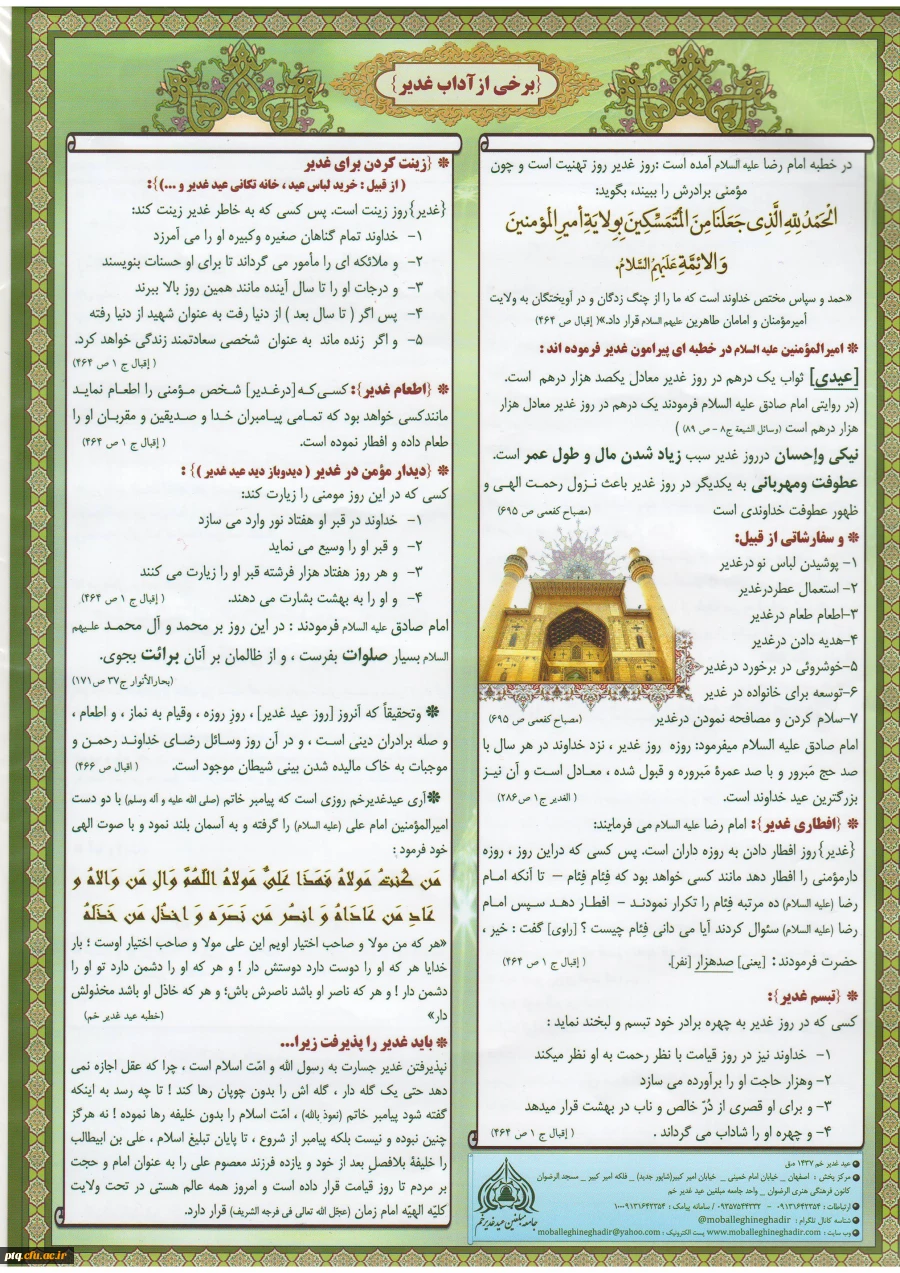 {برخی از آداب غدیر}
در خطبه امام رضا علیه السلام آمده است :روز غدیر روز تهنیت است و چون
مؤمنی برادرش را ببیند، بگوید:
اَلْحَمْدُ لِلّهِ الَّذی جَعَلَنا مِنَ الْمُتَمَسِّکینَ بِوِلایَةِ أمیرِ المؤمنینَ
وَ الائِمَّةِ عَلَیْهِمُ السَّلامُ.
«حمد و سپاس مختص خداوند است که ما را از چنگ زدگان و در آویختگان به ولایت
أمیرمؤمنان و امامان طاهرین علیهم السلام قرار داد.»( إقبال ص ۴۶۴)
❋ امیرالمؤمنین علیه السلام در خطبه ای پیرامون غدیر فرموده اند :
[عیدی] ثواب یک درهم در روز غدیر معادل یکصد هزار درهم است.
(در روایتی امام صادق علیه السلام فرمودند یک درهم در روز غدیر معادل هزار
هزار درهم است (وسائل الشیعة ج۸ – ص ۸۹) )
نیکی وإحسان درروز غدیر سبب زیاد شدن مال و طول عمر است.
عطوفت ومهربانی به یکدیگر در روز غدیر باعث نـزول رحمـت الهـی و
ظهور عطوفت خداوندی است (مصباح کفعمی ص ۶۹۵)
❋ و سفارشاتی از قبیل:
۱- پوشیدن لباس نو درغدیر
۲- استعمال عطردرغدیر
۳-اطعام طعام درغدیر
۴-هدیه دادن درغدیر
۵-خوشروئی در برخورد درغدیر
۶-توسعه برای خانواده در غدیر
۷-سلام کردن و مصافحه نمودن درغدیر (مصباح کفعمی ص ۶۹۵)
امام صادق علیه السلام میفرمود: روزه روز غدیر ، نزد خداوند در هر سال با
صد حج مَبرور و با صد عمرهٔ مَبروره و قبول شده ، معـادل اسـت و آن نیـز
بزرگترین عید خداوند است. ( الغدیر ج۱ ص۲۸۶)
❋ {افطاری غدیر}: امام رضا علیه السلام می فرمایند:
{غدیر}روز افطار دادن به روزه داران است. پس کسی که دراین روز ، روزه
دارمؤمنی را افطار دهد مانند کسی خواهد بود که فِئام فِئام – تا آنکه امـام
رضا (علیه السلام) ده مرتبه فِئام را تکرار نمودنـد – افطـار دهـد سـپس امـام
رضا (علیه السلام) سئوال کردند آیا می دانی فِئام چیست ؟ [راوی] گفت : خیر ،
حضرت فرمودند: [یعنی] صدهزار [نفر]. ( إقبال ج ۱ ص ۴۶۴)
❋ {تبسم غدیر}:
کسی که در روز غدیر به چهره برادر خود تبسم و لبخند نماید :
۱- خداوند نیز در روز قیامت با نظر رحمت به او نظر میکند
۲- وهزار حاجت او را برآورده می سازد
۳- و برای او قصری از دُرّ خالص و ناب در بهشت قرار میدهد
۴- و چهره او را شاداب می گرداند . ( إقبال ج ۱ ص ۴۶۴)
عید غدیر خم ۱۴۳۷ ه.ق
مرکز پخش : اصفهان _ خیابان امام خمینی _ خیابان امیر کبیر(شاپور جدید) _ فلکه امیر کبیر _ مسجد الرضوان
کانون فرهنگی هنری الرضوان _ واحد جامعه مبلغین عید غدیر خم
ارتباطات : ۰۹۱۳۱۶۴۲۳۵۴ - ۰۹۳۵۷۵۴۴۳۳۲ / سامانه پیامک : ۱۰۰۰۹۱۳۱۶۴۲۳۵۴
شناسه کانال تلگرام : @moballeghineghadir
وب سایت : www.moballeghineghadir.com پست الکترونیک : moballeghineghadir@yahoo.com
جامعه مبلغین عید غدیر خم
❋ {زینت کردن برای غدیر
( از قبیل : خرید لباس عید ، خانه تکانی عید غدیر و ...)}:
{غدیر}روز زینت است. پس کسی که به خاطر غدیر زینت کند:
۱- خداوند تمام گناهان صغیره وکبیره او را می آمرزد
۲- و ملائکه ای را مأمور می گرداند تا برای او حسنات بنویسند
۳- و درجات او را تا سال آینده مانند همین روز بالا ببرند
۴- پس اگر ( تا سال بعد ) از دنیا رفت به عنوان شهید از دنیا رفته
۵- و اگر زنده ماند به عنوان شخصی سعادتمند زندگی خواهد کرد.
( إقبال ج ۱ ص ۴۶۴)
❋ {اطعام غدیر}: کسـی کـه [درغـدیر] شـخص مـؤمنی را اطعـام نمایـد
مانندکسی خواهد بود که تمـامی پیـامبران خـدا و صـدیقین و مقربـان او را
طعام داده و افطار نموده است. ( إقبال ج ۱ ص ۴۶۴)
❋ {دیدار مؤمن در غدیر ( دیدوباز دید عید غدیر )} :
کسی که در این روز مومنی را زیارت کند:
۱- خداوند در قبر او هفتاد نور وارد می سازد
۲- و قبر او را وسیع می نماید
۳- و هر روز هفتاد هزار فرشته قبر او را زیارت می کنند
۴- و او را به بهشت بشارت می دهند. ( إقبال ج ۱ ص ۴۶۴)
امام صادق علیه السلام فرمودند : در این روز بر محمد و آل محمـد علـیهم
السلام بسیار صلوات بفرست ، و از ظالمان بر آنان برائت بجوی.
(بحارالأنوار ج۳۷ ص۱۷۱)
❋ وتحقیقاً که آنروز [روز عید غدیر] ، روز روزه ، وقیام به نماز ، و اطعام ،
و صله برادران دینی اسـت ، و در آن روز وسـائل رضـای خداونـد رحمـن و
موجبات به خاک مالیده شدن بینی شیطان موجود است. ( اقبال ص ۴۶۶)
❋آری عیدغدیرخم روزی است که پیامبر خاتم (صلی الله علیه و آله وسلم) با دو دست
امیرالمؤمنین امام علی (علیه السلام) را گرفته و به آسمان بلند نمود و با صوت الهی
خود فرمود :
مَن کُنتُ مَولاهُ فَهَذا عَلِیٌّ مَولاهُ اللّهُمَّ وَالِ مَن وَالاهُ وَ
عَادِ مَن عَادَاهُ وَ انصُر مَن نَصَرَه وَ اخذُل مَن خَذَلَهُ
«هر که من مولا و صاحب اختیار اویم این علی مولا و صاحب اختیار اوست ؛ بار
خدایا هر که او را دوست دارد دوستش دار ! و هر که او را دشمن دارد تو او را
دشمن دار ! و هر که ناصر او باشد ناصرش باش؛ و هر که خاذل او باشد مخذولش
دار» (خطبه عید غدیر خم)
❋ باید غدیر را پذیرفت زیرا...
نپذیرفتن غدیر جسارت به رسول الله و امّت اسلام است ، چرا که عقل اجازه نمی
دهد حتی یک گله دار ، گله اش را بدون چوپان رها کند ! تا چه رسد به اینکه
گفته شود پیامبر خاتم (نعوذ بالله) ، امّت اسلام را بدون خلیفه رها نموده ! نه هرگز
چنین نبوده و نیست بلکه پیامبر از شروع ، تا پایان تبلیغ اسلام ، علی بن ابیطالب
را خلیفهٔ بلافصلِ بعد از خود و یازده فرزند معصوم علی را به عنوان امام و حجت
بر مردم تا روز قیامت قرار داده است و امروز همه عالم هستی در تحت ولایت
کلیّه الهیّه امام زمان (عجّل الله تعالی فی فرجه الشریف) قرار دارد.
ptq.cfu.ac.ir